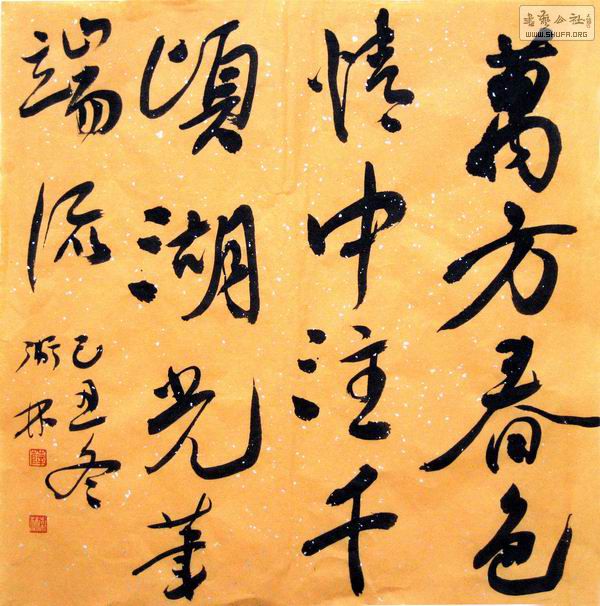 萬方春色
情中注千
頃湖光筆
端流
己丑冬
林
書藝公社
WWW.SHUFA.ORG